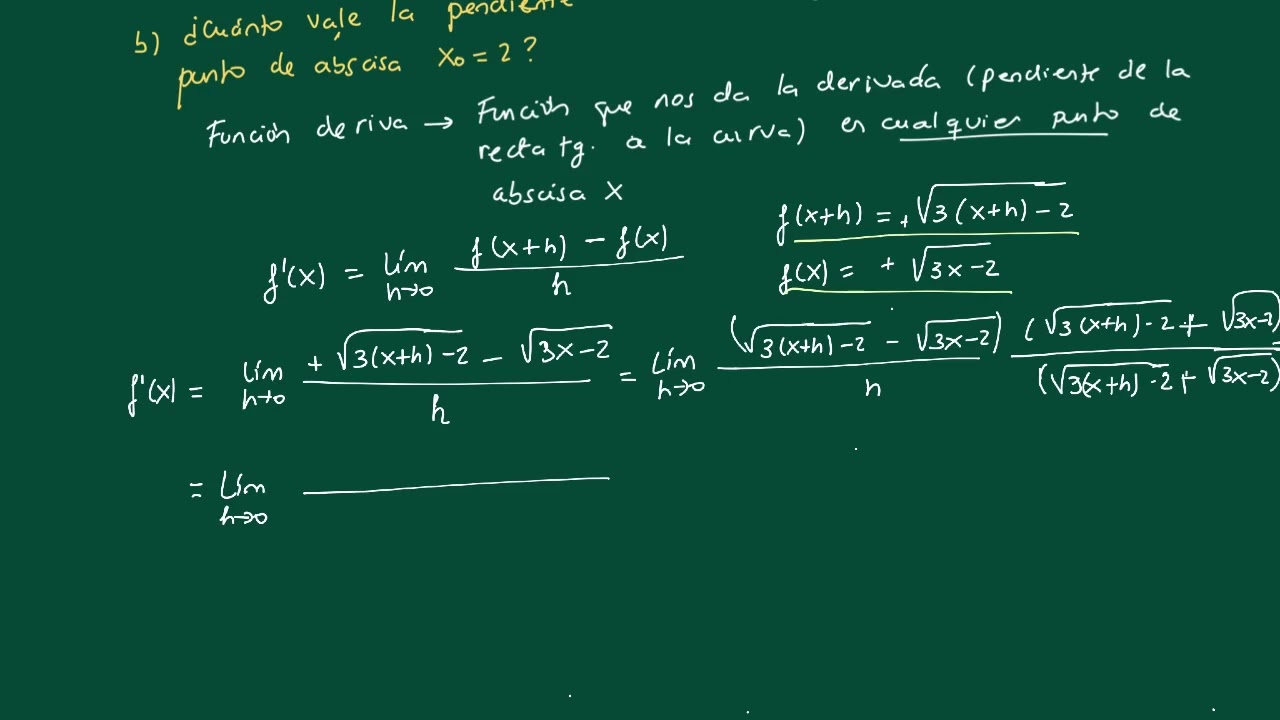 b) ¿Cuánto vale la pendiente
punto de abscisa x₀ = 2 ?
Función deriva → Función que nos da la derivada (pendiente de la
recta tg. a la curva) en cualquier punto de
abscisa X
f(x+h) = +√(3(x+h)-2)
f'(x) = lím h→0 (f(x+h) - f(x))/h
f(x) = +√(3x-2)
f'(x) = lím h→0 (+√(3(x+h)-2) - √(3x-2))/h = lím h→0 (√(3(x+h)-2) - √(3x-2))/h (√(3(x+h)-2) + √(3x-2))/(√(3(x+h)-2) + √(3x-2))
= lím h→0